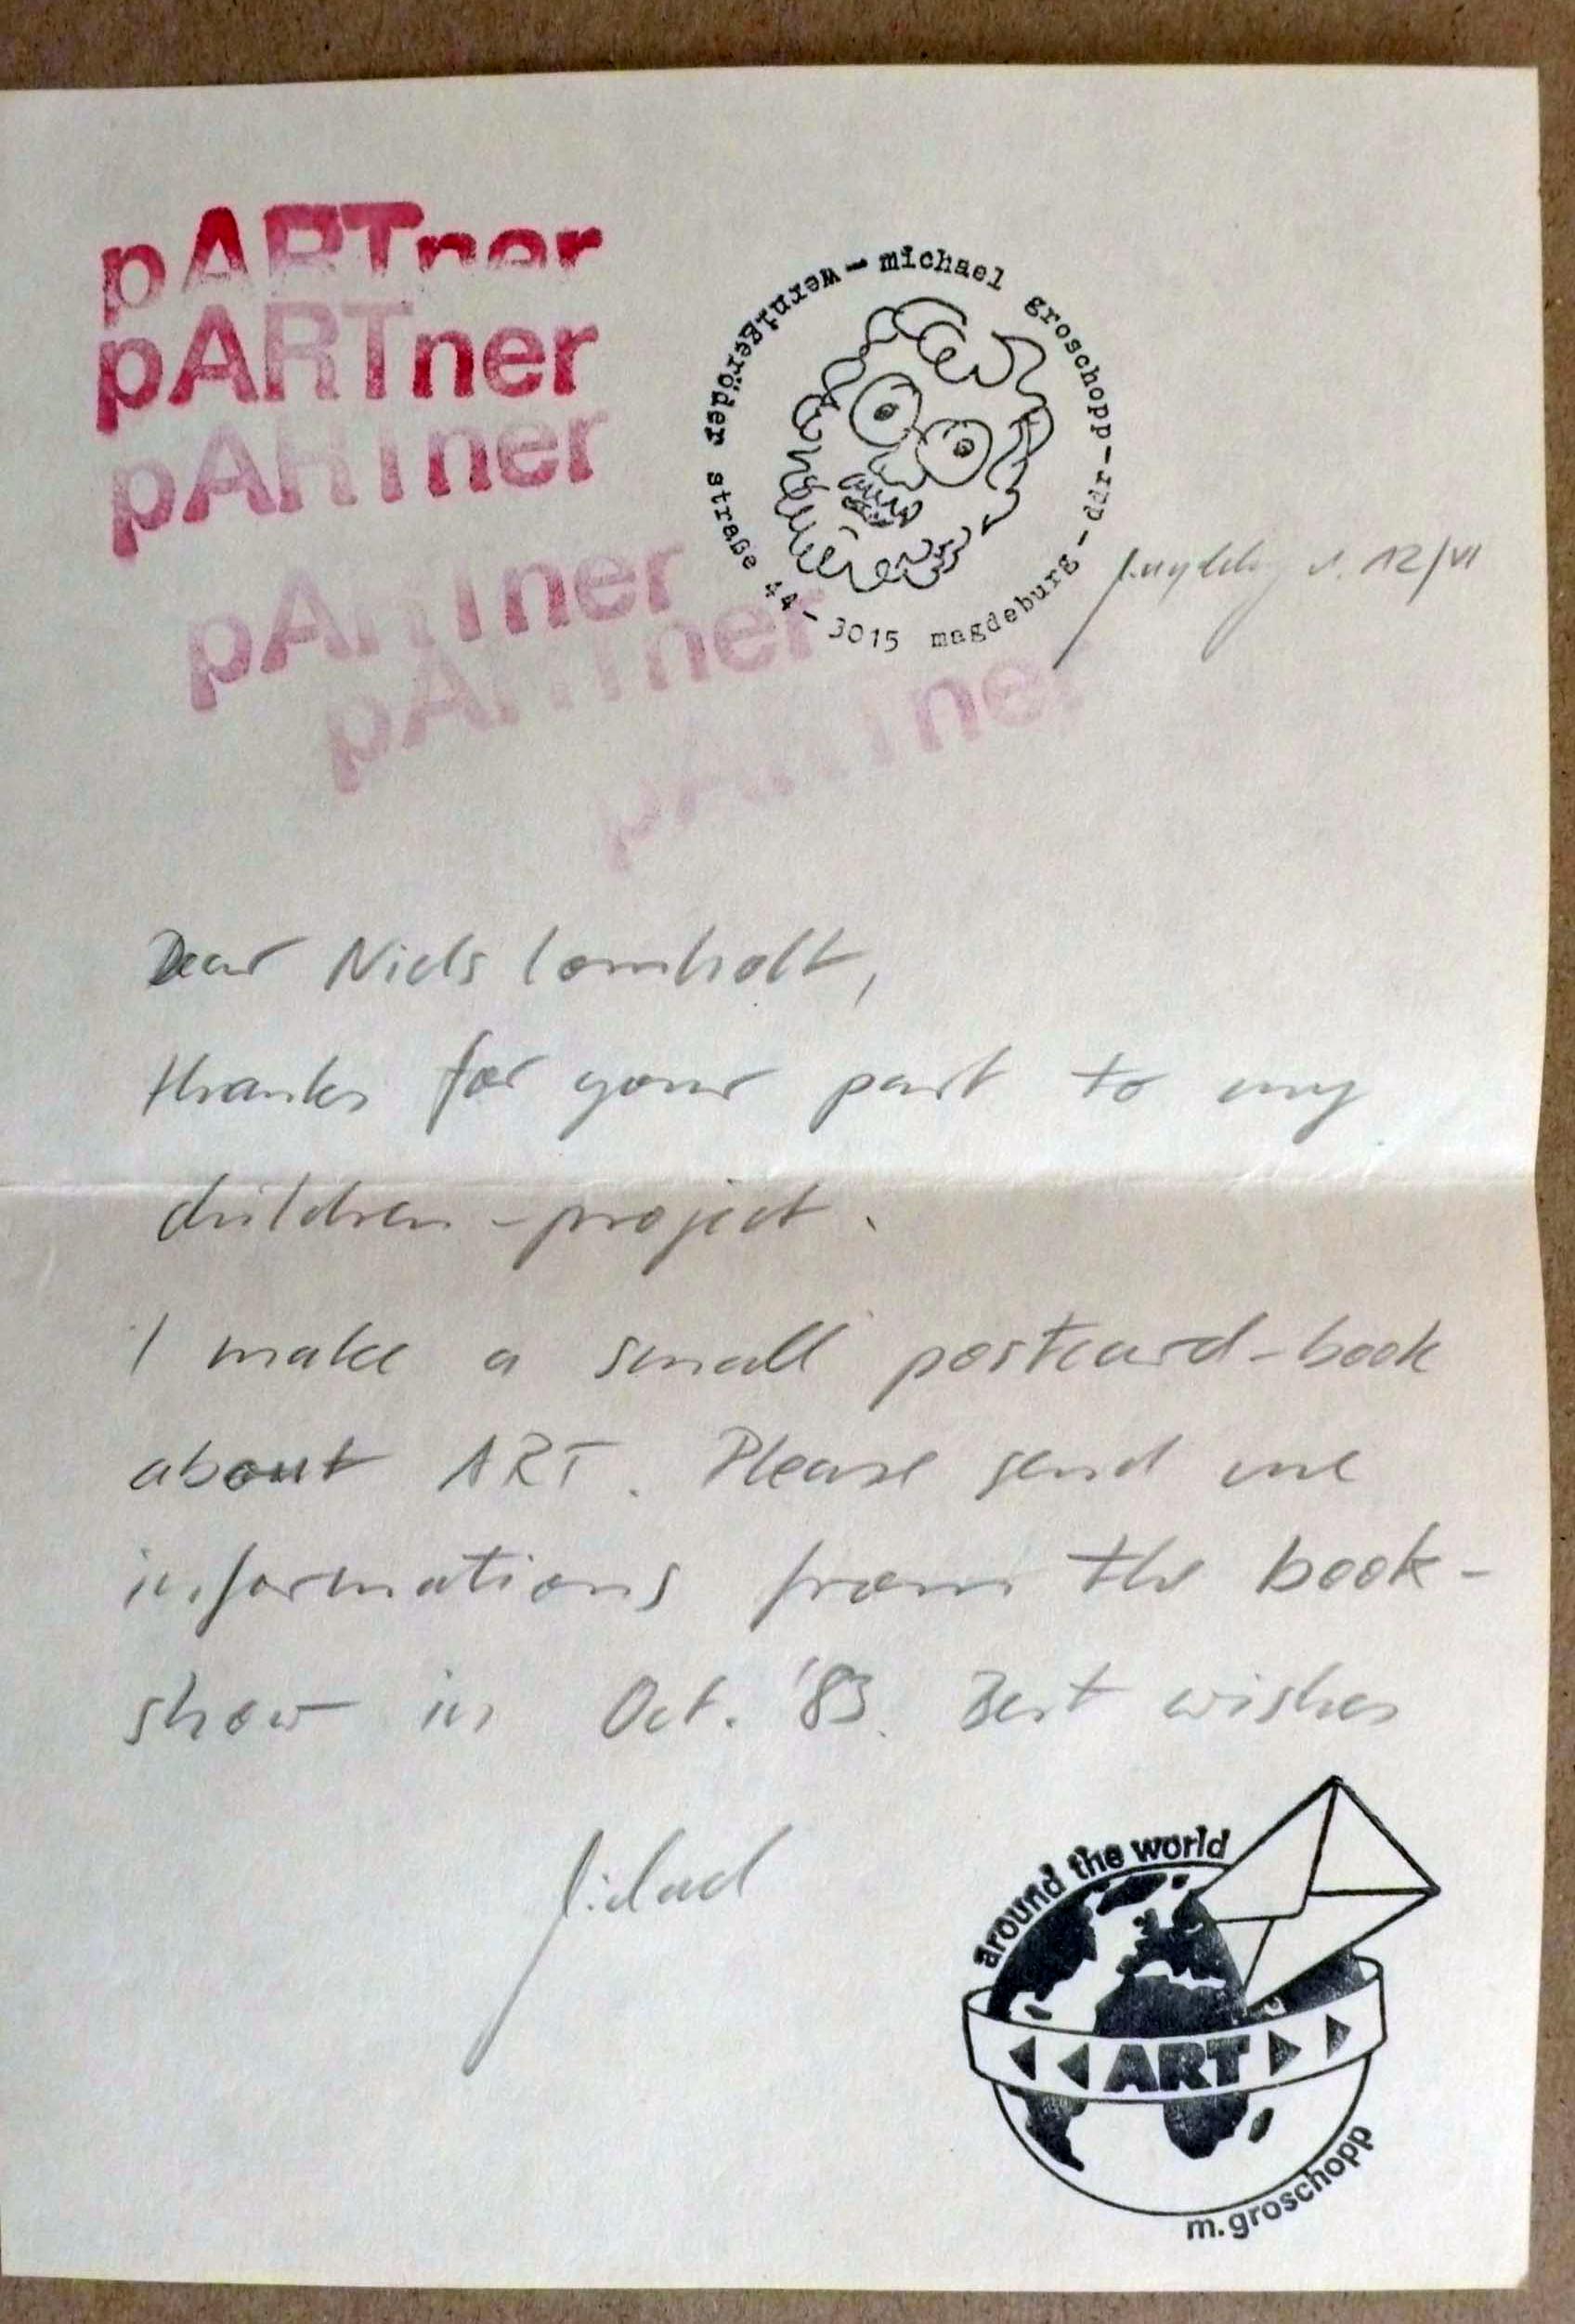 pARTner
pARTner
pARTner
pARTner
pARTner
pARTner
michael groschopp - ddr - magdeburg 3015 - wernigeröder straße 44 -
12/VI
Dear Niels Lomholt,
thanks for your part to my
children-project.
I make a small postcard-book
about ART. Please send me
informations from the book-
show in Oct. '83. Best wishes
Michael
around the world
ART
m.groschopp